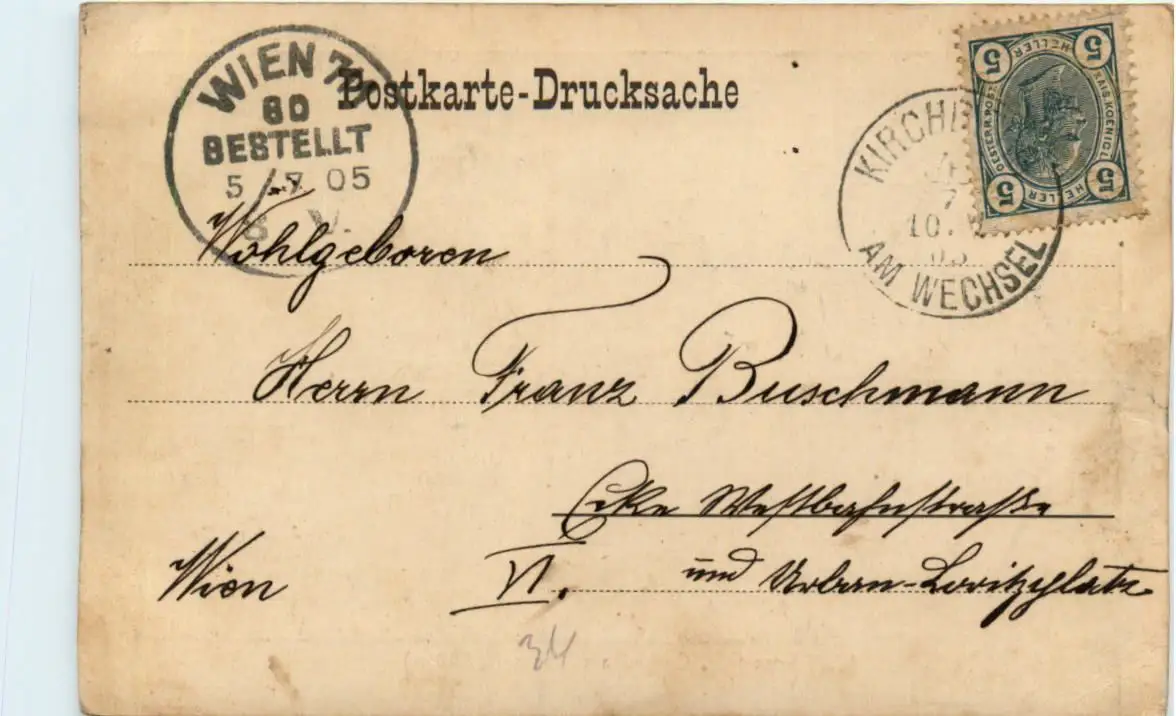 WIEN
BESTELLT
5 7 05
8 V.
Postkarte-Drucksache
AM WECHSEL
5 HELLER 5
KAIS. KOENIGL.
OESTERR. POST
5 HELLER 5
Wohlgeboren
Herrn Franz Buschmann
Ecke Westbahnstraße
Wien VI. und Urban-Loritzplatz
34